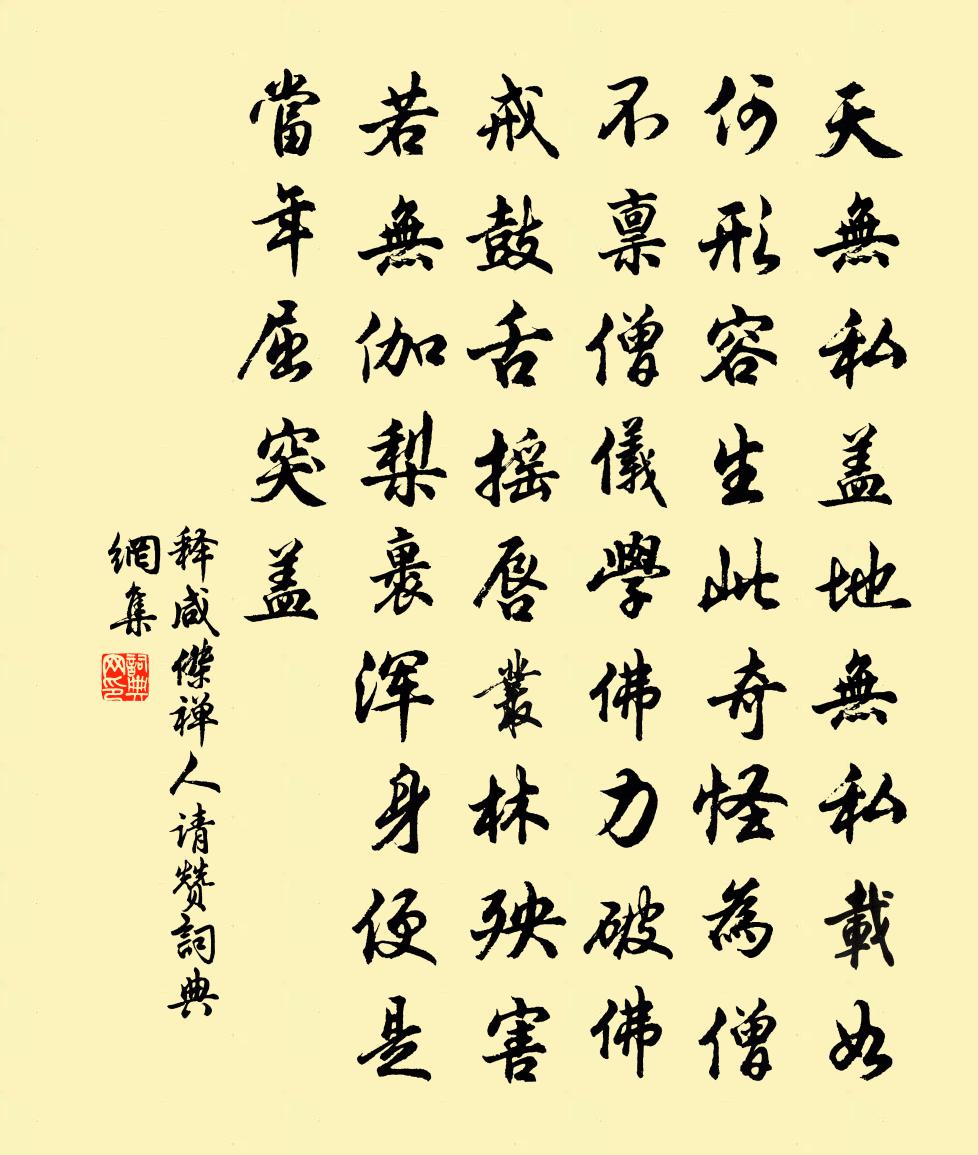 天無私盖地無私載如
何形容生此奇怪為僧
不禀僧儀學佛力破佛
戒鼓舌摇唇叢林殃害
若無伽梨裹浑身便是
當年屈突盖
释咸傑禅人请赞詞典
網集
詞典网印